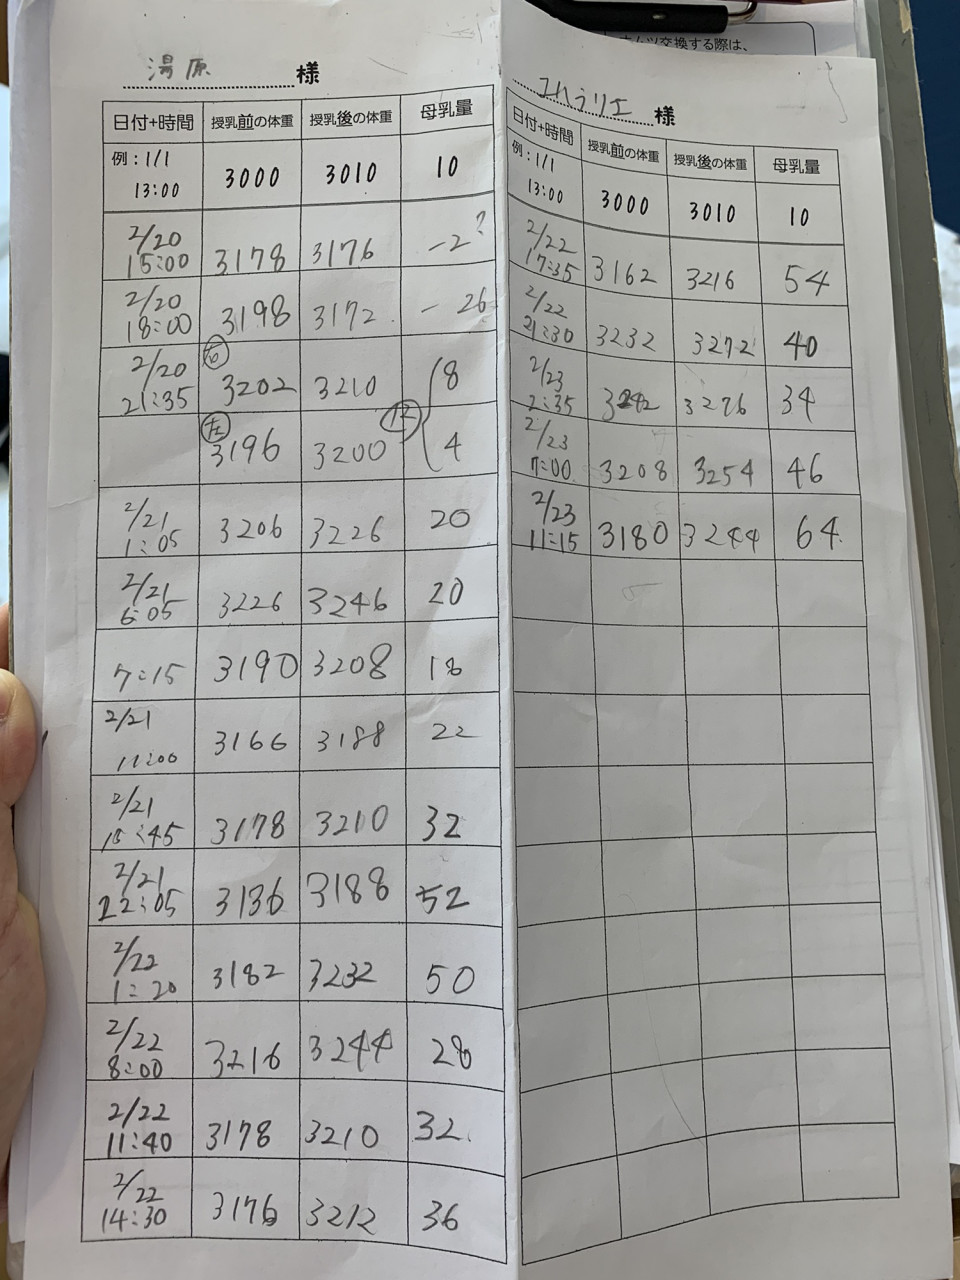 ムツ交換する際は、
湯原 様
日付+時間 授乳前の体重 授乳後の体重 母乳量
例:1/1 13:00 3000 3010 10
2/20 15:00 3178 3176 -2?
2/20 18:00 3198 3172 -26
2/20 21:35 右 3202 3210 8
左 3196 3200 12 4
2/21 1:05 3206 3226 20
2/21 6:05 3226 3246 20
7:15 3190 3208 18
2/21 11:00 3166 3188 22
2/21 15:45 3178 3210 32
2/21 22:05 3136 3188 52
2/22 1:20 3182 3232 50
2/22 8:00 3216 3244 28
2/22 11:40 3178 3210 32
2/22 14:30 3176 3212 36
様
日付+時間 授乳前の体重 授乳後の体重 母乳量
例:1/1 13:00 3000 3010 10
2/22 17:35 3162 3216 54
2/22 21:30 3232 3272 40
2/23 2:35 3242 3276 34
2/23 7:00 3208 3254 46
2/23 11:15 3180 3244 64